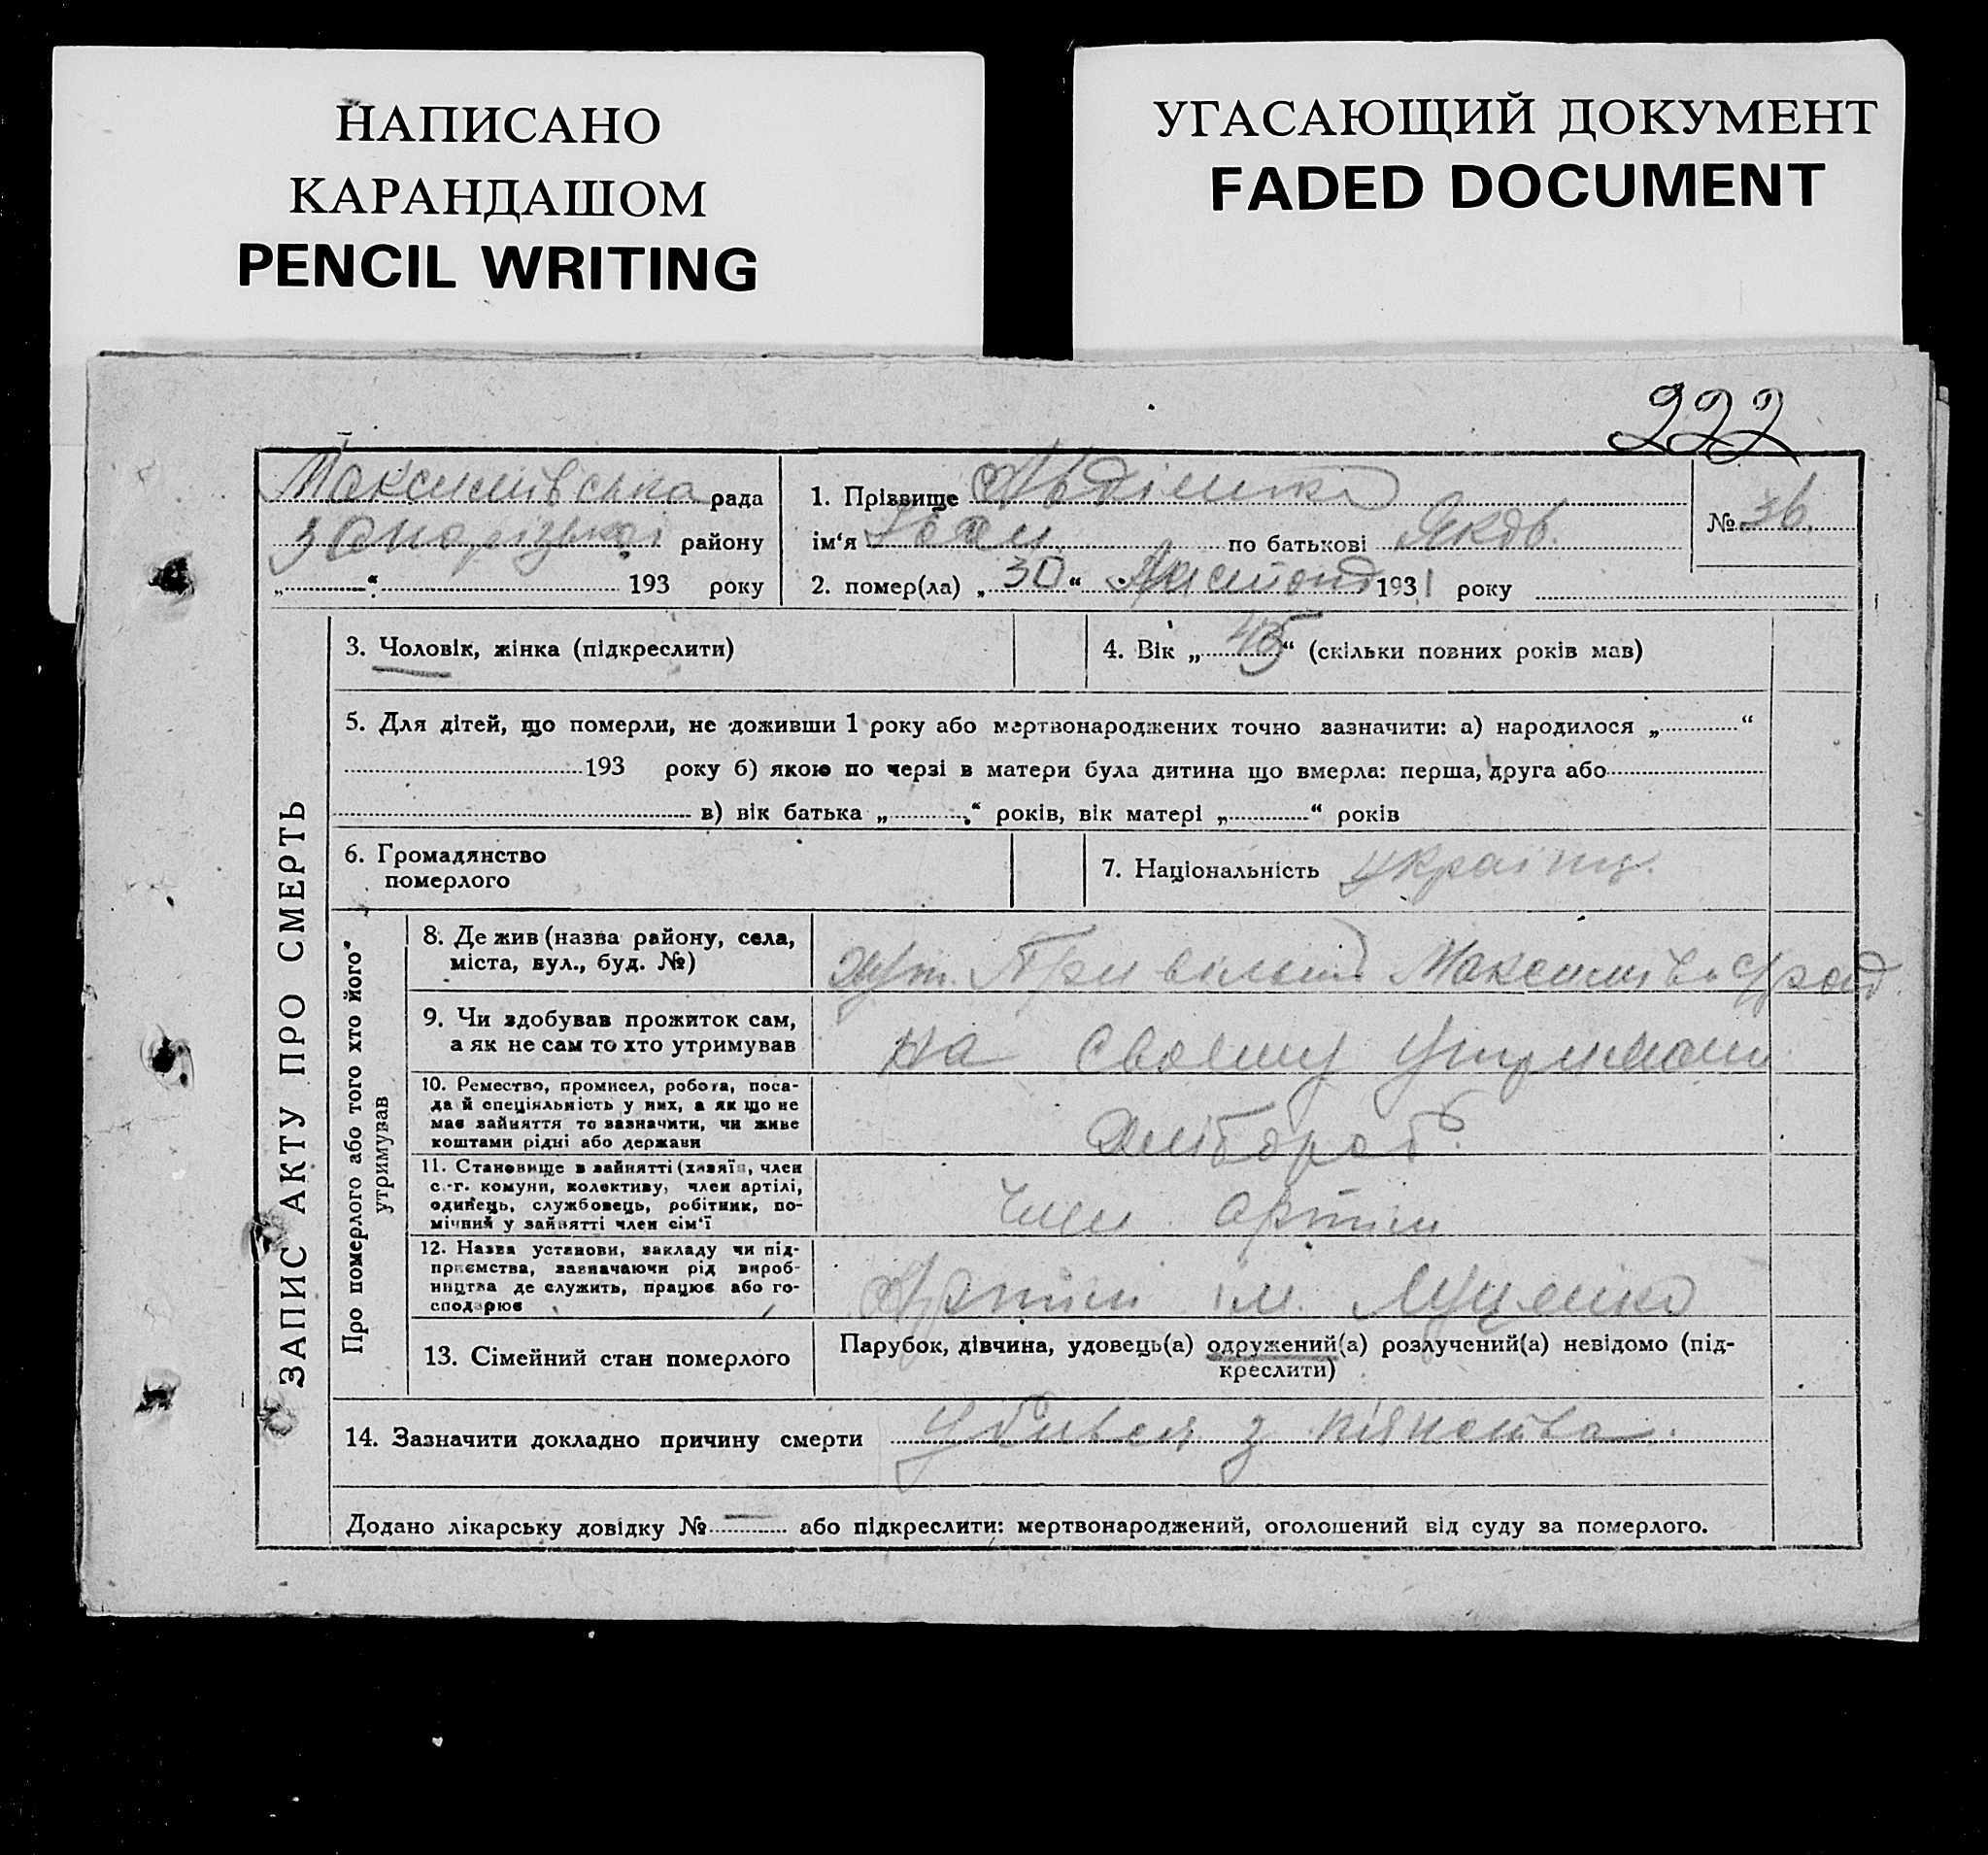 НАПИСАНО
КАРАНДАШОМ
PENCIL WRITING
УГАСАЮЩИЙ ДОКУМЕНТ
FADED DOCUMENT
222
ЗАПИС АКТУ ПРО СМЕРТЬ
Максимівська рада
Запорізької району
„ “ 193 року
1. Прізвище
ім‘я Іван по батькові Яков.
2. помер(ла) „30“ 1931 року
№ 36.
3. Чоловік, жінка (підкреслити)
4. Вік „ “ (скільки повних років мав)
5. Для дітей, що померли, не доживши 1 року або мертвонароджених точно зазначити: а) народилося „ “
193 року б) якою по черзі в матери була дитина що вмерла: перша, друга або
в) вік батька „ “ років, вік матері „ “ років
6. Громадянство
померлого
7. Національність україн.
Про померлого або того хто його
утримував
8. Де жив (назва району, села,
міста, вул., буд. №)
хут. Привільний Максимівс. рад.
9. Чи здобував прожиток сам,
а як не сам то хто утримував
на своєму утриман
10. Ремество, промисел, робота, поса-
да й спеціяльність у них, а як що не
має зайняття то зазначити, чи живе
коштами рідні або держави
Хлібороб.
11. Становище в зайнятті (хазяїн, член
с.-г. комуни, колективу, член артілі,
одинець, службовець, робітник, по-
мічний у зайнятті член сім‘ї
Член артіли
12. Назва установи, закладу чи під-
приємства, зазначаючи рід вироб-
ництва де служить, працює або го-
сподарює
Артіли ім.
13. Сімейний стан померлого
Парубок, дівчина, удовець(а) одружений(а) розлучений(а) невідомо (під-
креслити)
14. Зазначити докладно причину смерти Убився з пянства.
Додано лікарську довідку № — або підкреслити: мертвонароджений, оголошений від суду за померлого.